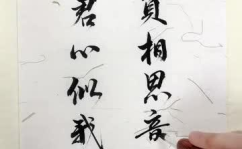 負相思意
君心似我